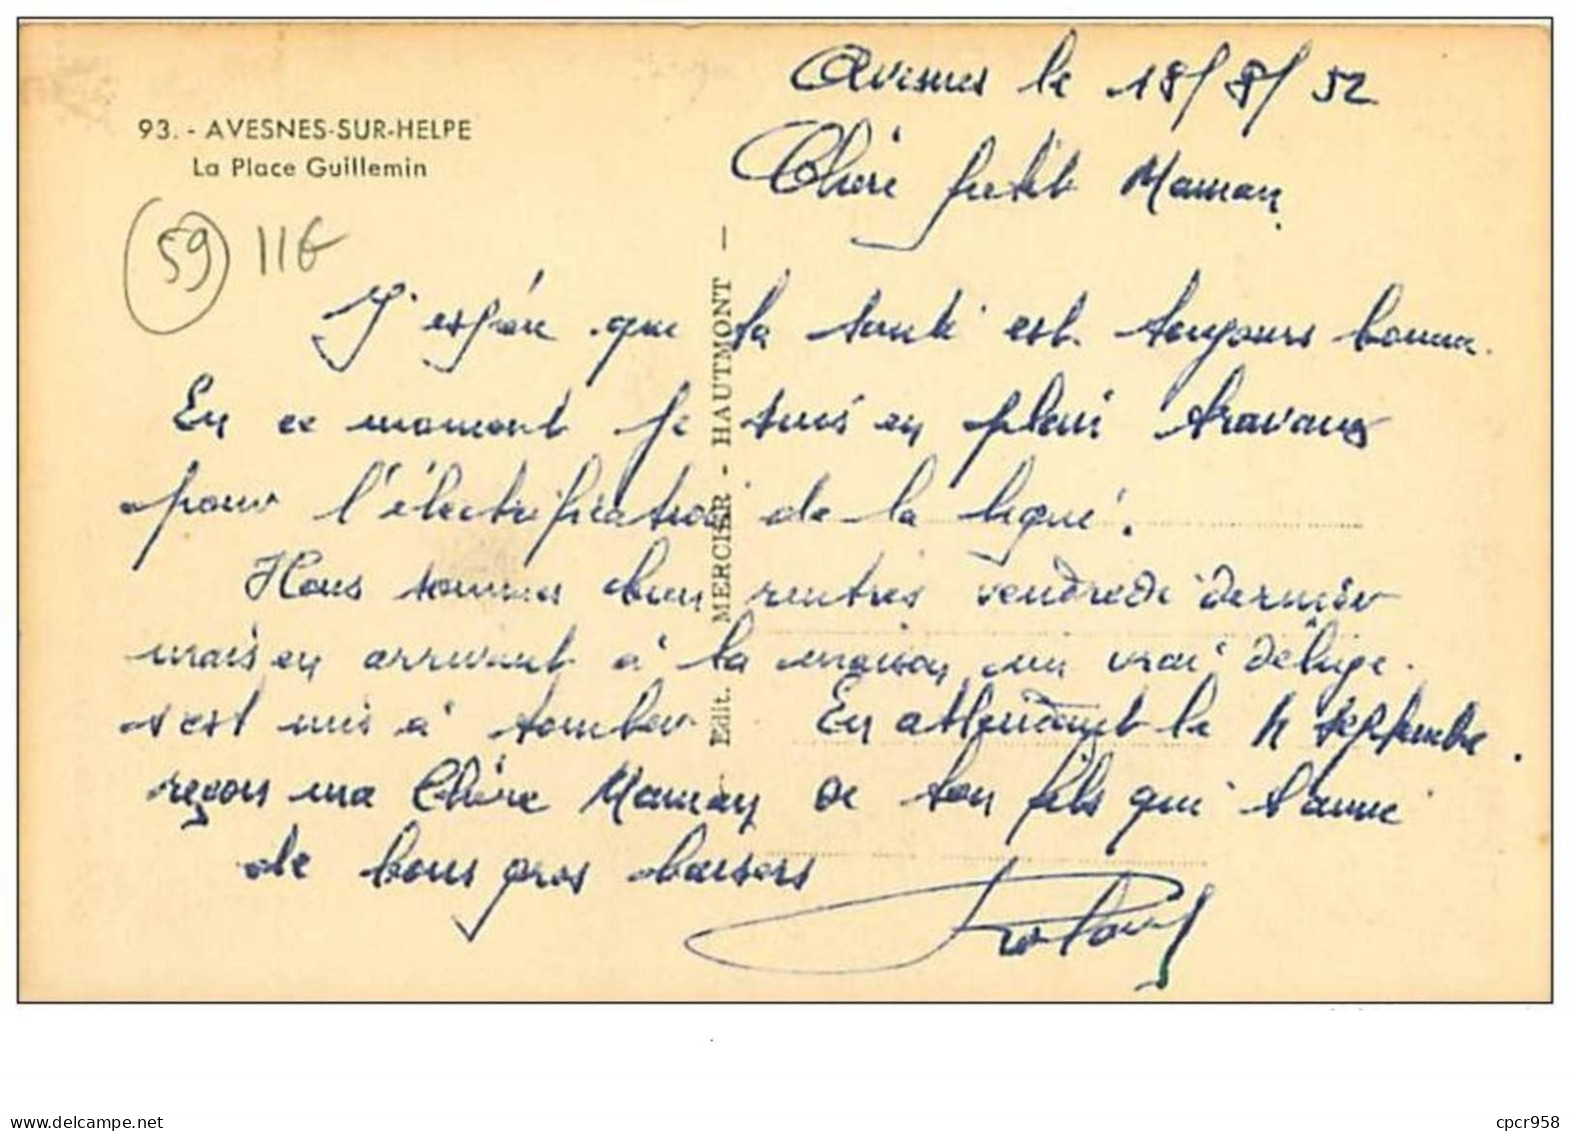 93. - AVESNES-SUR-HELPE
La Place Guillemin
59 11E
Edit. MERCIER - HAUTMONT —
Avesnes le 18/8/52
Chère petite Maman,
J'espère que ta santé est toujours bonne.
En ce moment je suis en plein travaux
pour l'électrification de la ligne.
Nous sommes bien rentrés vendredi dernier
mais en arrivant à la maison un vrai déluge
s'est mis à tomber. En attendant le 11 septembre
reçois ma Chère Maman de ton fils qui t'aime
de bons gros baisers
Roland
www.delcampe.net
cpcr958